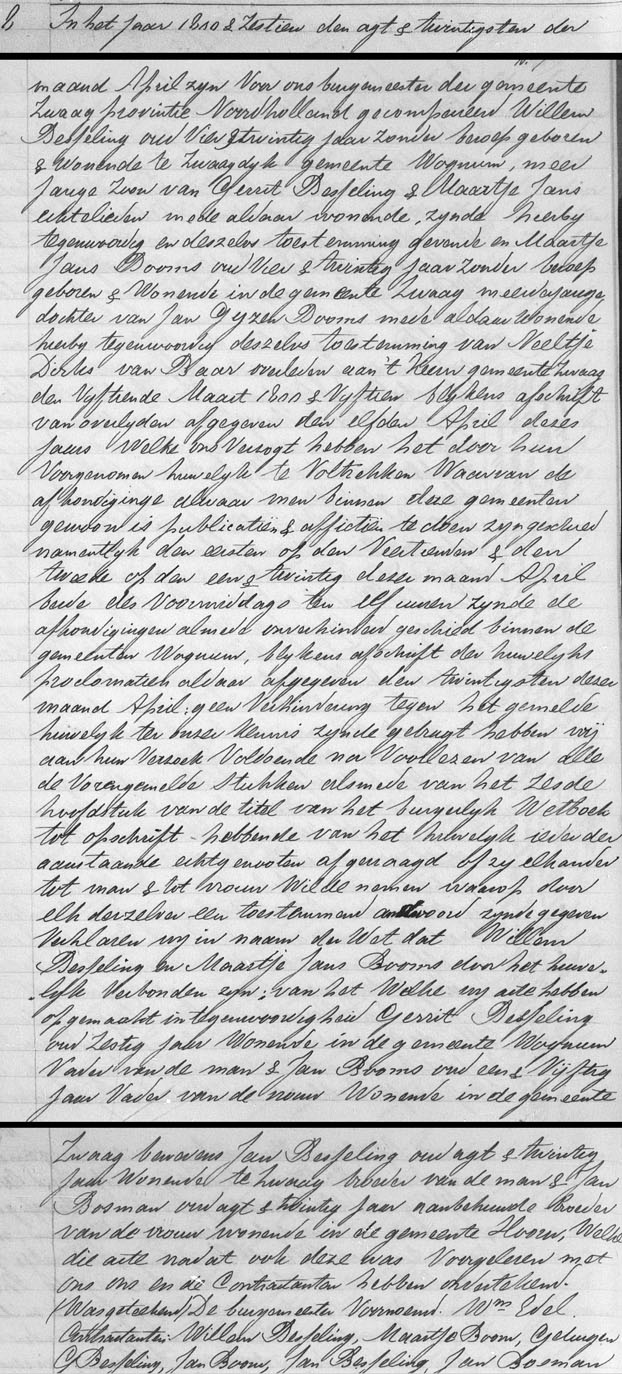 8 In het Jaar 1800 & Zestien den agt & twintigsten der
maand April zyn Voor ons burgemeester der gemeente
Zwaag provintie Noordholland gecompareerd Willem
Besseling oud Vier & twintig jaar Zonder beroep geboren
& Wonende te Zwaagdyk gemeente Wognum, meer
Jarige Zoon van Gerrit Besseling & Maartje Jans
echtelieden mede aldaar wonende, zynde hierby
tegenwoordig en deszelvs toestemming gevende en Maartje
Jans Booms oud Vier & twintig jaar Zonder beroep
geboren & Wonende in de gemeente Zwaag meerderjarige
dochter van Jan Gyzen Booms mede aldaar Wonende
hierby tegenwoordig deszelvs toestemming van Neeltje
Dirks van Baar overleden aan 't Keern gemeente Zwaag
den Vyftiende Maart 1800 & Vyftien blykens afschrift
van overlyden afgegeven den elfden April dezes
jaars Welke ons Verzogt hebben het door hun
Voorgenomen huwelyk te Voltrekken Waarvan de
afkondiginge alwaar men binnen deze gemeenten
gewoon is publicatiën & affictiën te doen zyn geschied
namentlyk den eersten op den Veertienden & den
tweede op den een & twintig dezer maand April
beide des Voormiddags ten elf uuren zynde de
afkondigingen almede onverhinderd geschied binnen de
gemeenten Wognum, blykens afschrift der huwelyks
proclamatien aldaar afgegeven den twintigsten dezer
maand April; geen Verhindering tegen het gemelde
huwelyk ter onser kennis zynde gebragt hebben wij
aan hun Verzoek Voldoende na Voorlezen van alle
de Vorengemelde Stukken alsmede van het Zesde
hoofdstuk van de titel van het burgerlyk Wetboek
tot opschrift - hebbende van het huwelyk ieder der
aanstaande echtgenooten afgevraagd of zy elkander
tot man & tot vrouw Wilde nemen waarop door
elk derzelver een toestemmend antwoord zynde gegeven
Verklaren wy in naam der Wet dat Willem
Besseling en Maartje Jans Booms door het huwe-
lyk Verbonden zyn; van het Welke wy acte hebben
opgemaakt in tegenwoordigheid Gerrit Besseling
oud Zestig jaar Wonende in de gemeente Wognum
Vader van de man & Jan Booms oud een & Vijftig
jaar Vader van de vrouw Wonende in de gemeente
Zwaag benevens Jan Besseling oud agt & twintig
jaar Wonende te Zwaag broeder van de man & Jan
Bosman oud agt & twintig jaar aanbehuwde Broeder
van de vrouw wonende in de gemeente Hoorn, Welke
die acte nadat ook deze was Voorgelezen met
ons en die Contractanten hebben onderteekend.
(Was geteekend) De burgemeester Voornoemd. Wm Edel.
Contractanten: Willem Besseling, Maartje Boom, Getuigen
G Besseling, Jan Boom, Jan Besseling, Jan Bosman